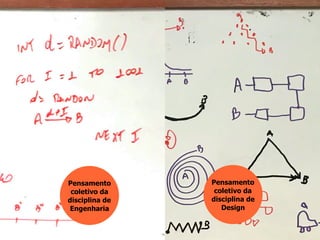 INT d = RANDOM()
FOR I = 1 TO 1001
d = RANDOM
A d+I B
NEXT I
B A B
Pensamento
coletivo da
disciplina de
Engenharia
B
A B
B
A
B
A
B
B
A
B
A
B
Pensamento
coletivo da
disciplina de
Design